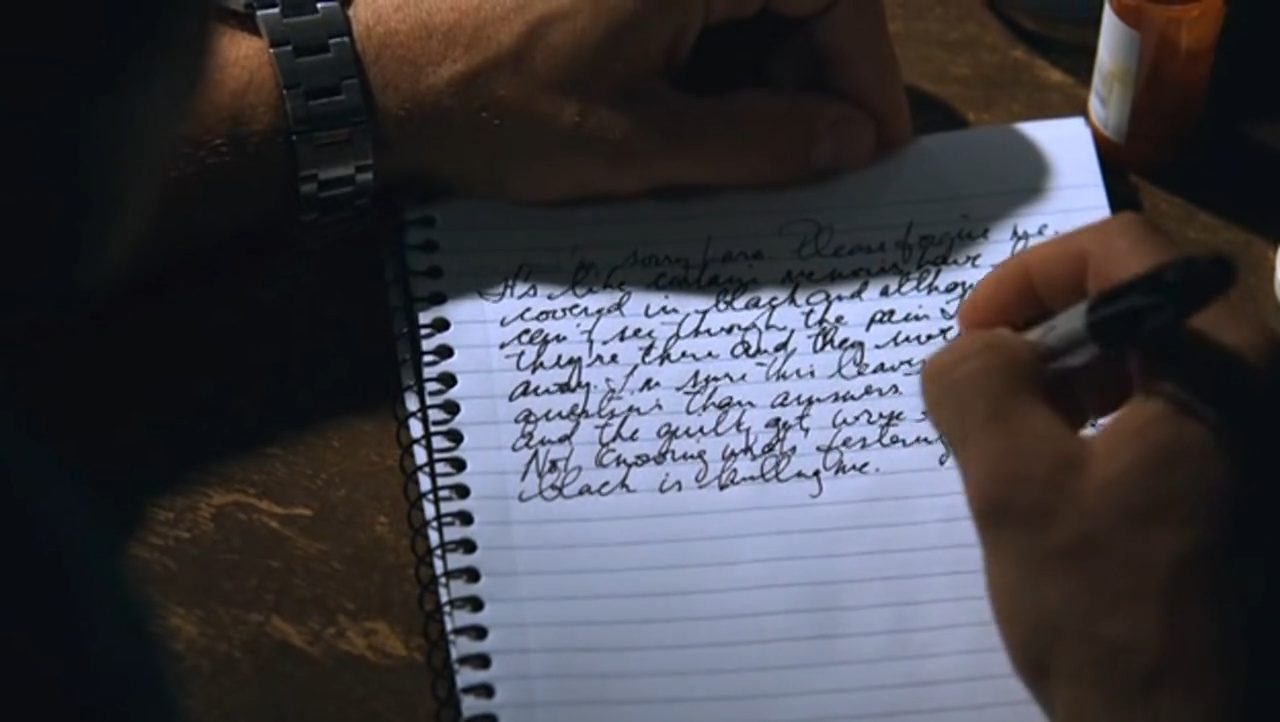 I'm sorry Lana. Please forgive me.
It's like certain memories have
covered in black and althoug
can't see through the pain I
they're there and they won't
away. I'm sure this leaves
questions than answers
and the guilt got worse
Not knowing what's festering
black is killing me.